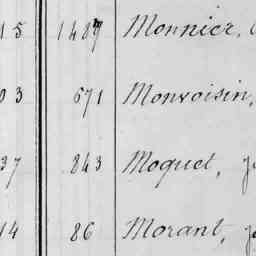 15 1487 Monnier,
03 671 Monvoisin,
37 843 Moquet, j
14 86 Morant, j